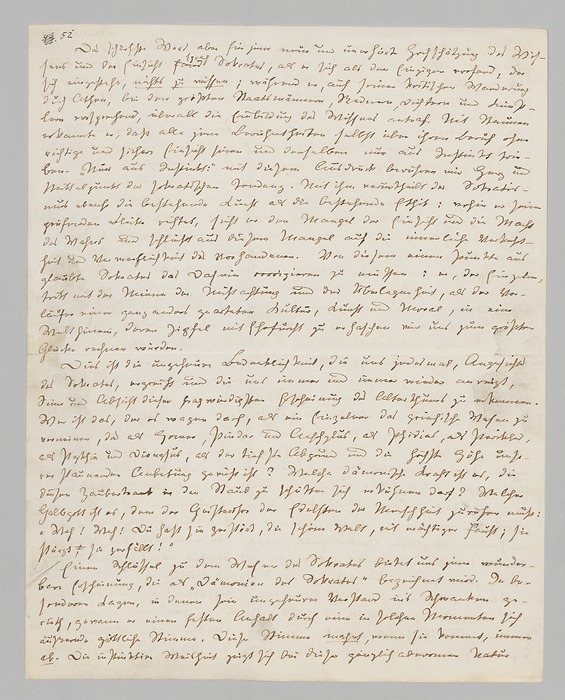 52
Das schärfste Wort aber für jene neue und unerhörte Hochschätzung des Wis-
sens und der Einsicht sprach Sokrates, als er sich als den Einzigen vorfand, der
sich eingestehe, nichts zu wissen; während er, auf seiner kritischen Wanderung
durch Athen, bei den größten Staatsmännern, Rednern, Dichtern und Künst-
lern vorsprechend, überall die Einbildung des Wissens antraf. Mit Staunen
erkannte er, daß alle jene Berühmtheiten selbst über ihren Beruf ohne
richtige und sichere Einsicht seien und denselben nur aus Instinkt trie-
ben. „Nur aus Instinkt": mit diesem Ausdruck berühren wir Herz und
Mittelpunkt der sokratischen Tendenz. Mit ihm verurtheilt der Sokratis-
mus ebenso die bestehende Kunst als die bestehende Ethik: wohin er seine
prüfenden Blicke richtet, sieht er den Mangel der Einsicht und die Macht
des Wahns und schließt aus diesem Mangel auf die innerliche Verkehrt-
heit und Verwerflichkeit des Vorhandenen. Von diesem einen Punkte aus
glaubte Sokrates das Dasein corrigieren zu müssen: er, der Einzelne,
tritt mit der Miene der Nichtachtung und der Überlegenheit, als der Vor-
läufer einer ganz anders gearteten Kultur, Kunst und Moral, in eine
Welt hinein, deren Zipfel mit Ehrfurcht zu erhaschen wir uns zum größten
Glücke rechnen würden.
Dies ist die ungeheure Bedenklichkeit, die uns jedesmal, Angesichts
des Sokrates, ergreift und die uns immer und immer wieder anreizt,
Sinn und Absicht dieser fragwürdigsten Erscheinung des Alterthums zu erkennen.
Wer ist das, der es wagen darf, als ein Einzelner das griechische Wesen zu
verneinen, das als Homer, Pindar und Aeschylus, als Phidias, als Perikles,
als Pythia und Dionysus, als der tiefste Abgrund und die höchste Höhe uns-
rer staunenden Anbetung gewiß ist? Welche dämonische Kraft ist es, die
diesen Zaubertrank in den Staub zu schütten sich erkühnen darf? Welcher
Halbgott ist es, dem der Geisterchor der Edelsten der Menschheit zurufen muß:
„Weh! Weh! Du hast sie zerstört, die schöne Welt, mit mächtiger Faust; sie
stürzt, sie zerfällt!"
Einen Schlüssel zu dem Wesen des Sokrates bietet uns jene wunder-
bare Erscheinung, die als „Dämonion des Sokrates" bezeichnet wird. In be-
sonderen Lagen, in denen sein ungeheurer Verstand ins Schwanken ge-
rieth, gewann er einen festen Anhalt durch eine in solchen Momenten sich
äußernde göttliche Stimme. Diese Stimme mahnt, wenn sie kommt, immer
ab. Die instinktive Weisheit zeigt sich bei dieser gänzlich abnormen Natur